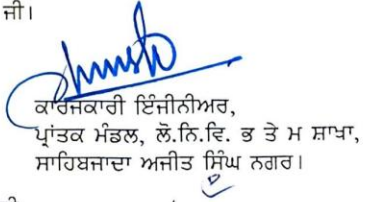 ਜੀ।
ਕਾਰਜਕਾਰੀ ਇੰਜੀਨੀਅਰ,
ਪ੍ਰਾਂਤਕ ਮੰਡਲ, ਲੋ.ਨਿ.ਵਿ. ਭ ਤੇ ਮ ਸ਼ਾਖਾ,
ਸਾਹਿਬਜਾਦਾ ਅਜੀਤ ਸਿੰਘ ਨਗਰ।